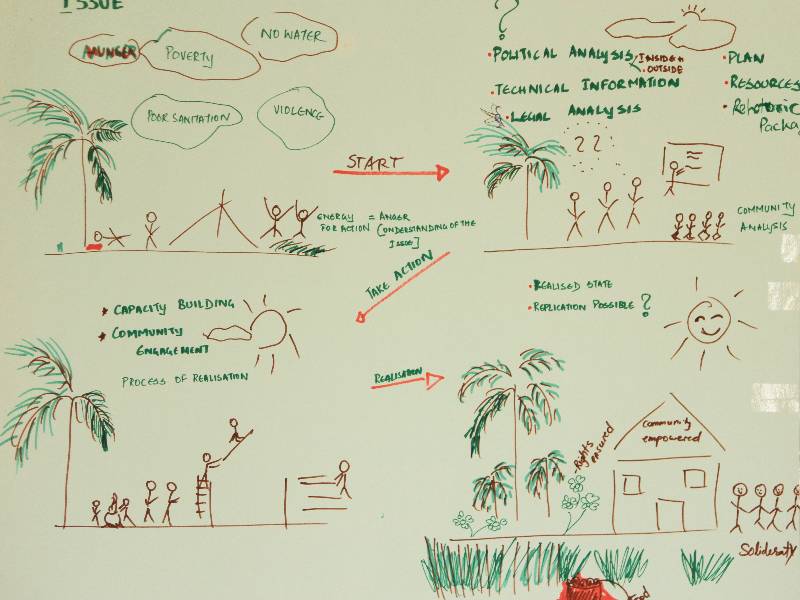 ISSUE
HUNGER
POVERTY
NO WATER
POOR SANITATION
VIOLENCE
START
ENERGY = ANGER
FOR ACTION [UNDERSTANDING OF THE
ISSUE]
?
• POLITICAL ANALYSIS
INSIDE
• OUTSIDE
• TECHNICAL INFORMATION
• LEGAL ANALYSIS
• PLAN
• RESOURCES
• Rehtoric
Packa
? ?
COMMUNITY
ANALYSIS
TAKE ACTION
* CAPACITY BUILDING
* COMMUNITY
ENGAGEMENT
PROCESS OF REALISATION
REALISATION
• REALISED STATE
• REPLICATION POSSIBLE ?
Rights
ensured
Community
empowered
Solideraty